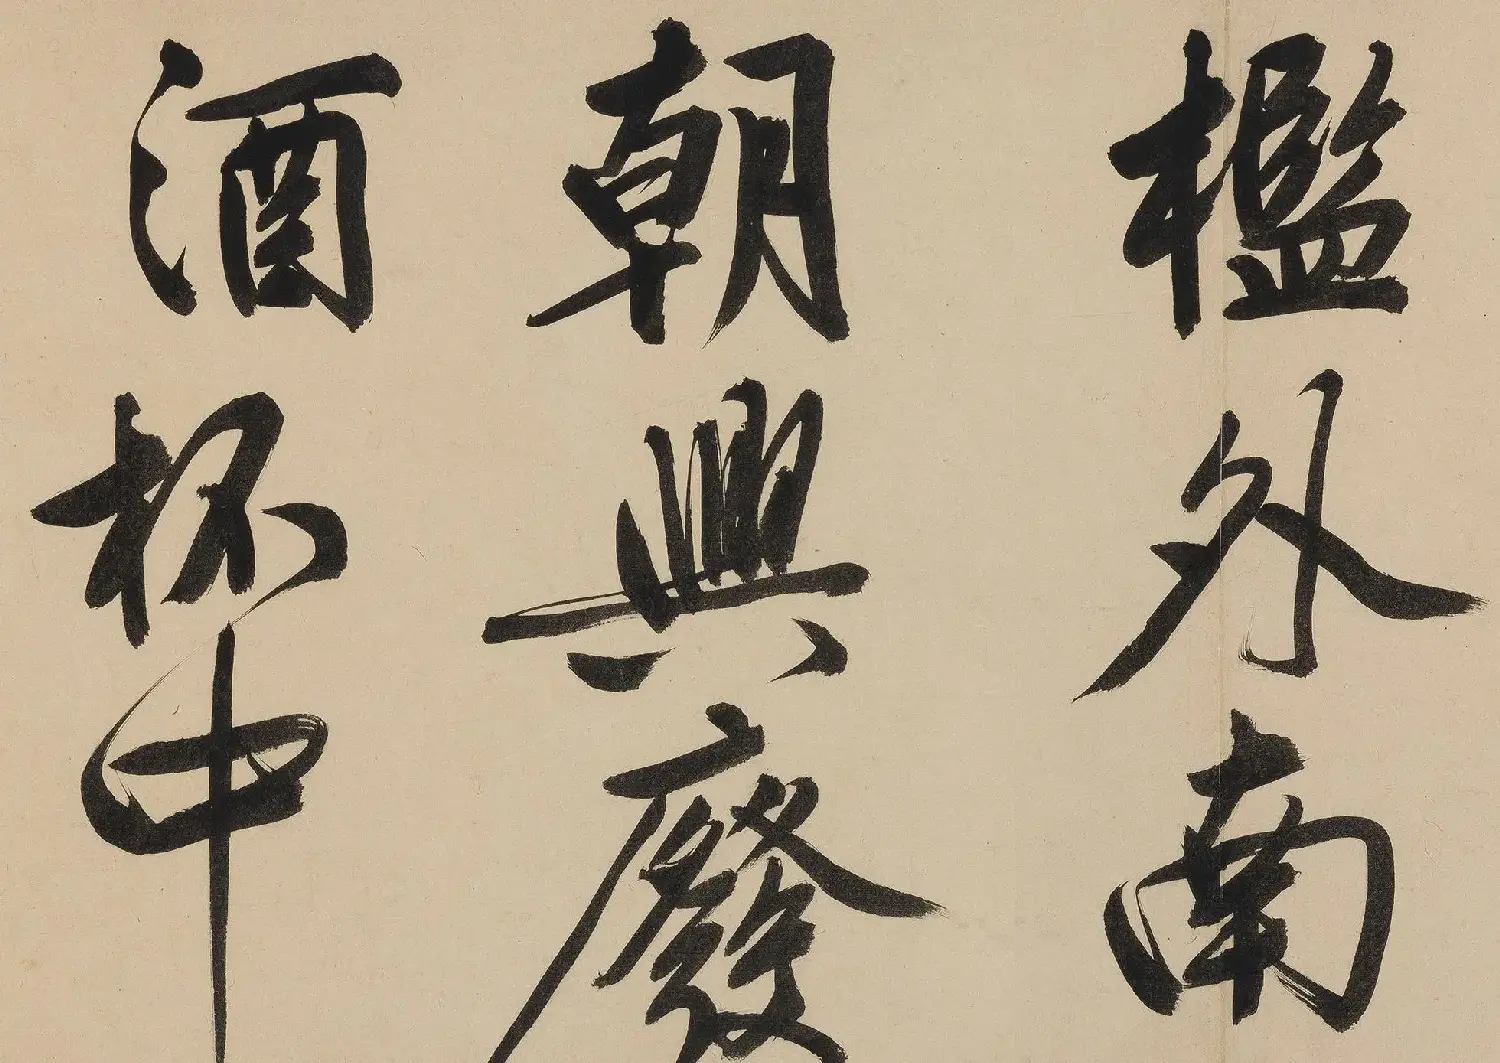 檻外南
朝興廢
酒杯中